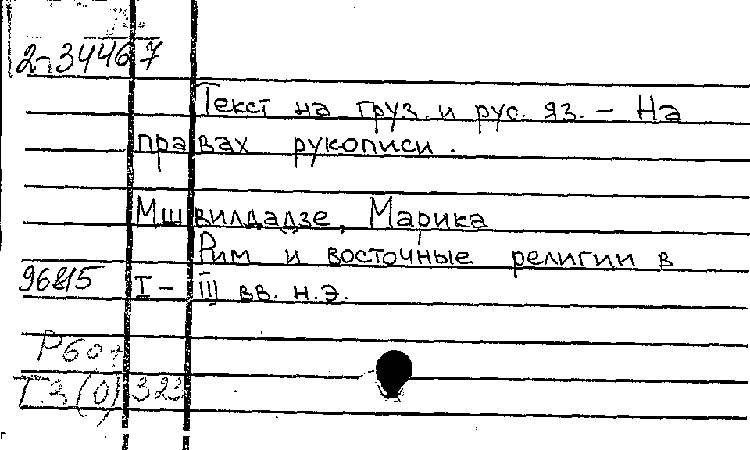 2-34467
Текст на груз. и рус. яз. – На
правах рукописи.
Мшвилдадзе, Марика
Рим и восточные религии в
96815 I – III вв. н.э.
Г3(0)323